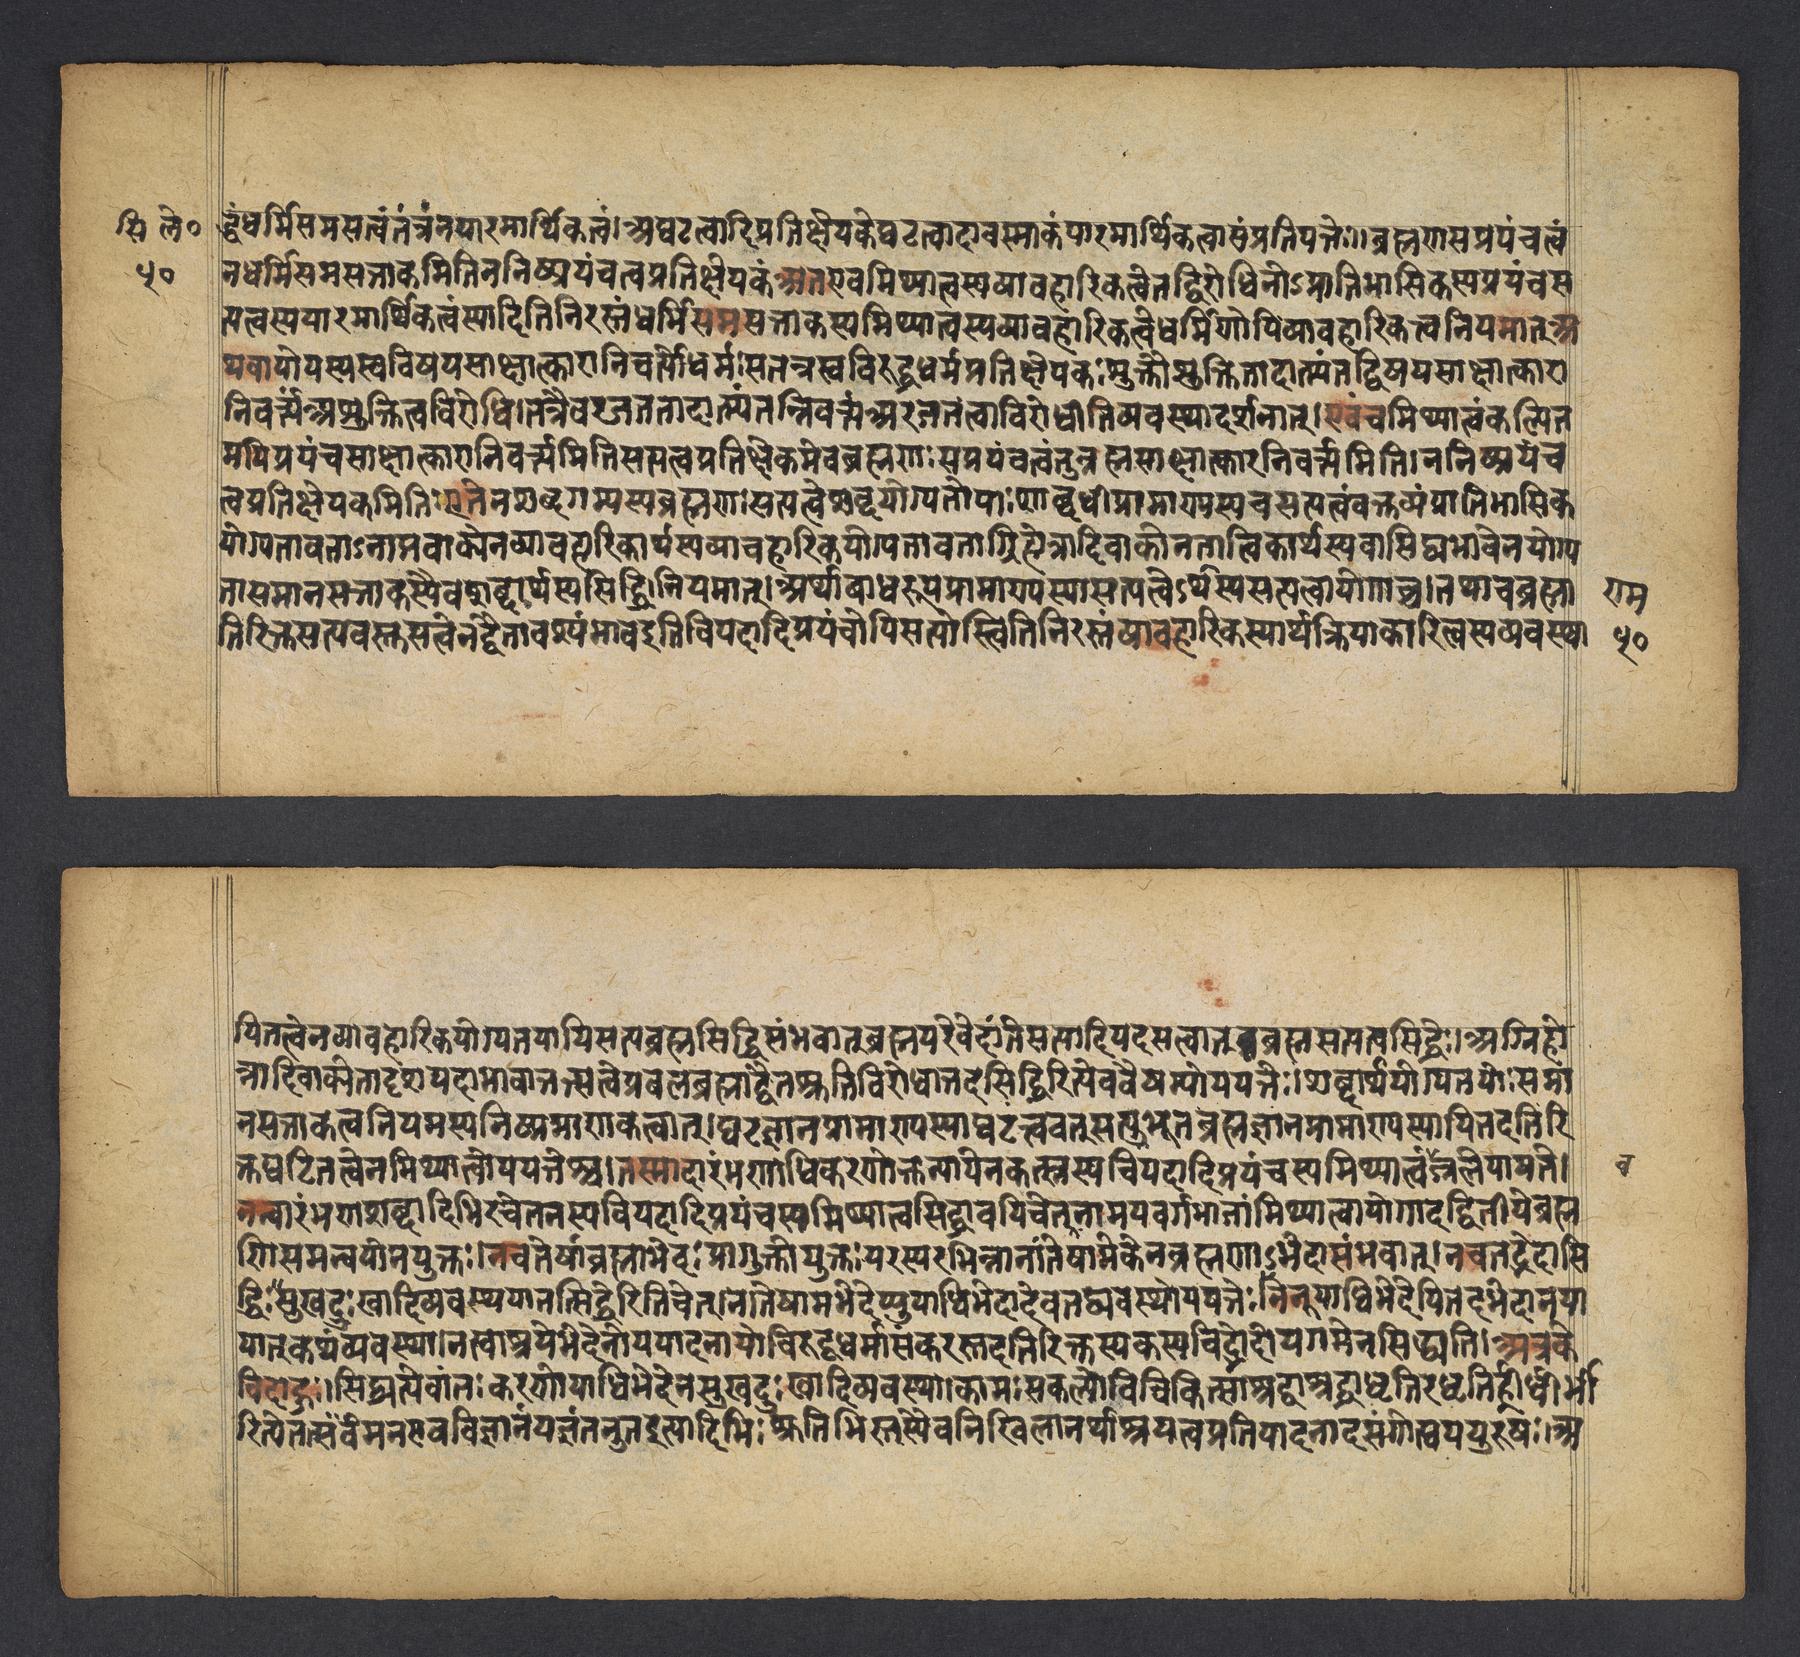 सि ले॰
५०
द्वंधर्मिसमसत्वंतंत्रंनपारमार्थिकत्वं।अघटत्वादिप्रतिक्षेपकेघटत्वादावस्माकंपारमार्थिकत्वासंप्रतिपत्तेः।।ब्रह्मणःसप्रपंचत्वं
नधर्मिसमसत्ताकमितिननिष्प्रपंचत्वप्रतिक्षेपकंअतएवमिथ्यात्वस्यव्यावहारिकत्वेतद्विरोधिनोऽप्रातिभासिकस्यप्रपंचस
त्यत्वस्यपारमार्थिकत्वंस्यादितिनिरस्तंधर्मिसमसत्ताकस्यमिथ्यात्वस्यव्यावहारिकत्वेधर्मिणोपिव्यावहारिकत्वनियमात्अ
थवायोयस्यस्वविषयसाक्षात्कारानिवर्त्योधर्मःसतत्रस्वविरुद्धधर्मप्रतिक्षेपकःशुक्तौशुक्तितादात्म्यंतद्विषयसाक्षात्कारा
निवर्त्यंअशुक्तित्वविरोधि।तत्रैवरजततादात्म्यंतन्निवर्त्यंअरजतत्वाविरोधीतिव्यवस्थादर्शनात्।एवंचमिथ्यात्वंकल्पित
मपिप्रपंचसाक्षात्कारानिवर्त्यमितिसत्यत्वप्रतिक्षेकमेवब्रह्मणःसप्रपंचत्वंतुब्रह्मसाक्षात्कारनिवर्त्यमिति।ननिष्प्रपंच
त्वप्रतिक्षेपकमिति।एतेनशब्दगम्यस्यब्रह्मणःसत्यत्वेशब्दयोग्यतायाःशाब्दधीप्रामाण्यस्यचसत्यत्वंवक्तव्यंप्रातिभासिक
योग्यतावताऽनाप्तवाक्येनव्यावहारिकार्थस्यव्यावहारिकयोग्यतावताग्निहोत्रादिवाक्येनतात्विकार्थस्यवासिद्ध्यभावेनयोग्य
तासमानसत्ताकस्यैवशब्दार्थस्यसिद्धि।नियमात्।अर्थाबाधरूपप्रामाण्यस्यासत्यत्वेऽर्थस्यसत्यत्वायोगाच्च।तथाचब्रह्मा
तिरिक्तसत्यवस्तुसत्वेनद्वैतावश्यंभावइतिवियदादिप्रपंचोपिसत्योस्त्वितिनिरस्तंव्यावहारिकस्यार्थक्रियाकारित्वस्यव्यवस्था
राम
५०
पितत्वेनव्यावहारिकयोग्यतयापिसत्यब्रह्मसिद्धिसंभवात्ब्रह्मपरेवेदांतेसत्यादिपदसत्वात्ब्रह्मसत्यत्वसिद्धेः।।अग्निहो
त्रादिवाक्येतादृशपदाभावात्तत्सत्वेप्रबलब्रह्माद्वैतश्रुतिविरोधात्तदसिद्धिरित्येववैषम्योपपत्तेः।।शब्दार्थयोग्यतयोःसमा
नसत्ताकत्वनियमस्यनिष्प्रमाणकत्वात्।घटज्ञानप्रामाण्यस्याघटत्ववत्सत्यभूतब्रह्मज्ञानप्रामाण्यस्यापितदतिरि
क्तघटितत्वेनमिथ्यात्वोपपत्तेश्च।तस्मादारंभणाधिकरणोक्तन्यायेनकृत्स्नस्यवियदादिप्रपंचस्यमिथ्यात्वंज्रलेपायते।
व
नन्वारंभणशब्दादिभिरचेतनस्यवियदादिप्रपंचस्यमिथ्यात्वसिद्धावपिचेतनानामपवर्गभाजांमिथ्यात्वायोगादद्वितीयेब्रह्म
णिसमन्वयोनयुक्तः।नचतेषांब्रह्माभेदःप्रागुक्तोयुक्तःपरस्परभिन्नानांतेषामेकेनब्रह्मणाऽभेदासंभवात्।नचतद्भेदासि
द्धिःसुखदुःखादिव्यवस्थयातत्सिद्धेरितिचेत्।नतेषामभेदेप्युपाधिभेदादेवतद्व्यवस्थोपपत्तेः।ननूपाधिभेदेपितदभेदानपा
यात्कथंव्यवस्था।नस्वाश्रयभेदेनोपपादनायोविरुद्धधर्मासंकरस्तदतिरिक्तस्यकस्यचिद्भेदोपगमेनसिद्ध्यति।अत्रके
चिदाहुः।सिद्ध्यत्येवांतःकरणोपाधिभेदेनसुखदुःखादिव्यवस्था।कामःसंकल्पोविचिकित्साश्रद्धाश्रद्धाधृतिरधृतिर्ह्रीर्धीर्भी
रित्येतत्सर्वंमनएवविज्ञानंयज्ञंतनुतइत्यादिभिःश्रुतिभिस्तस्यैवनिखिलानर्थाश्रयत्वप्रतिपादनादसंगोह्ययंपुरुषः।।अ